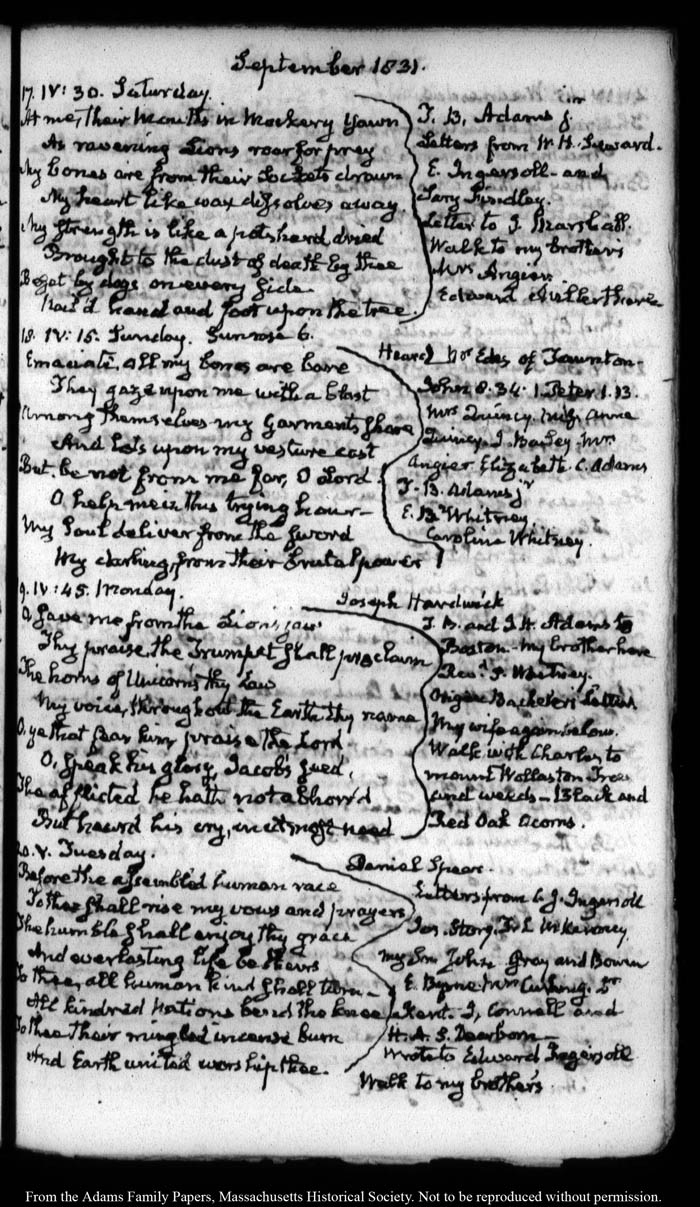 September 1831.
17. IV: 30. Saturday.
At me, their mouths in mockery yawn
As ravening Lions roar for prey
My bones are from their sockets drawn
My heart like wax dissolves away.
My strength is like a potsherd dried
Brought to the dust of death by thee
Beset by dogs on every side
Nail'd hand and foot upon the tree.
T. B. Adams jr
Letters from W. H. Seward.
E. Ingersoll - and
Letter to J. Marshall.
Walk to my brother's
Mrs Angier.
Edward
18. IV: 15. Sunday. Sunrose 6.
Emaciate, all my bones are bare
They gaze upon me with a blast
Among themselves my garments share
And lots upon my vesture cast
But be not from me far, O Lord
O help me in this trying hour -
My Soul deliver from the sword
My darling, from their brutal power
Heard Mr Edes of Taunton.
John 8.34. 1. Peter 1.13.
Mrs Quincy Miss Anne
Quincy. J. Bailey. Mrs
Angier Elizabeth C. Adams
T. B. Adams jr
E. Whitney
Caroline Whitney.
9. IV: 45. Monday.
O, save me from the Lion's jaw
Thy praise, the Trumpet shall proclaim
The horns of Unicorns thy Law
My voice, throughout the Earth thy name
O, ye that fear him praise the Lord
O, speak his glory, Jacob's seed,
The afflicted he hath not abhorr'd
But heard his cry, in utmost need
Joseph Hardwick
T. B. and I. H. Adams to
Boston - my brother here
Revd. P. Whitney.
Origen Bacheler's Letters
My wife again below.
Walk with Charles to
mount Wollaston. Trees
and weeds - Black and
Red Oak Acorns.
20. V. Tuesday.
Before the assembled human race
To thee shall rise my vows and prayers
The humble shall enjoy thy grace
And everlasting life be theirs
To thee, all human kind shall turn -
All kindred Nations bend the knee
To thee their mingled incense burn
And Earth united worship thee.
Daniel Spear.
Letters from C. J. Ingersoll
Jos. Story. T. L. McKenney.
my Son John. Gray and Bowen
E. Byrne Mrs Cushing.
Kent. J. Connell and
H. A. S. Dearborn -
Wrote to Edward Ingersoll
Walk to my brother's
From the Adams Family Papers, Massachusetts Historical Society. Not to be reproduced without permission.